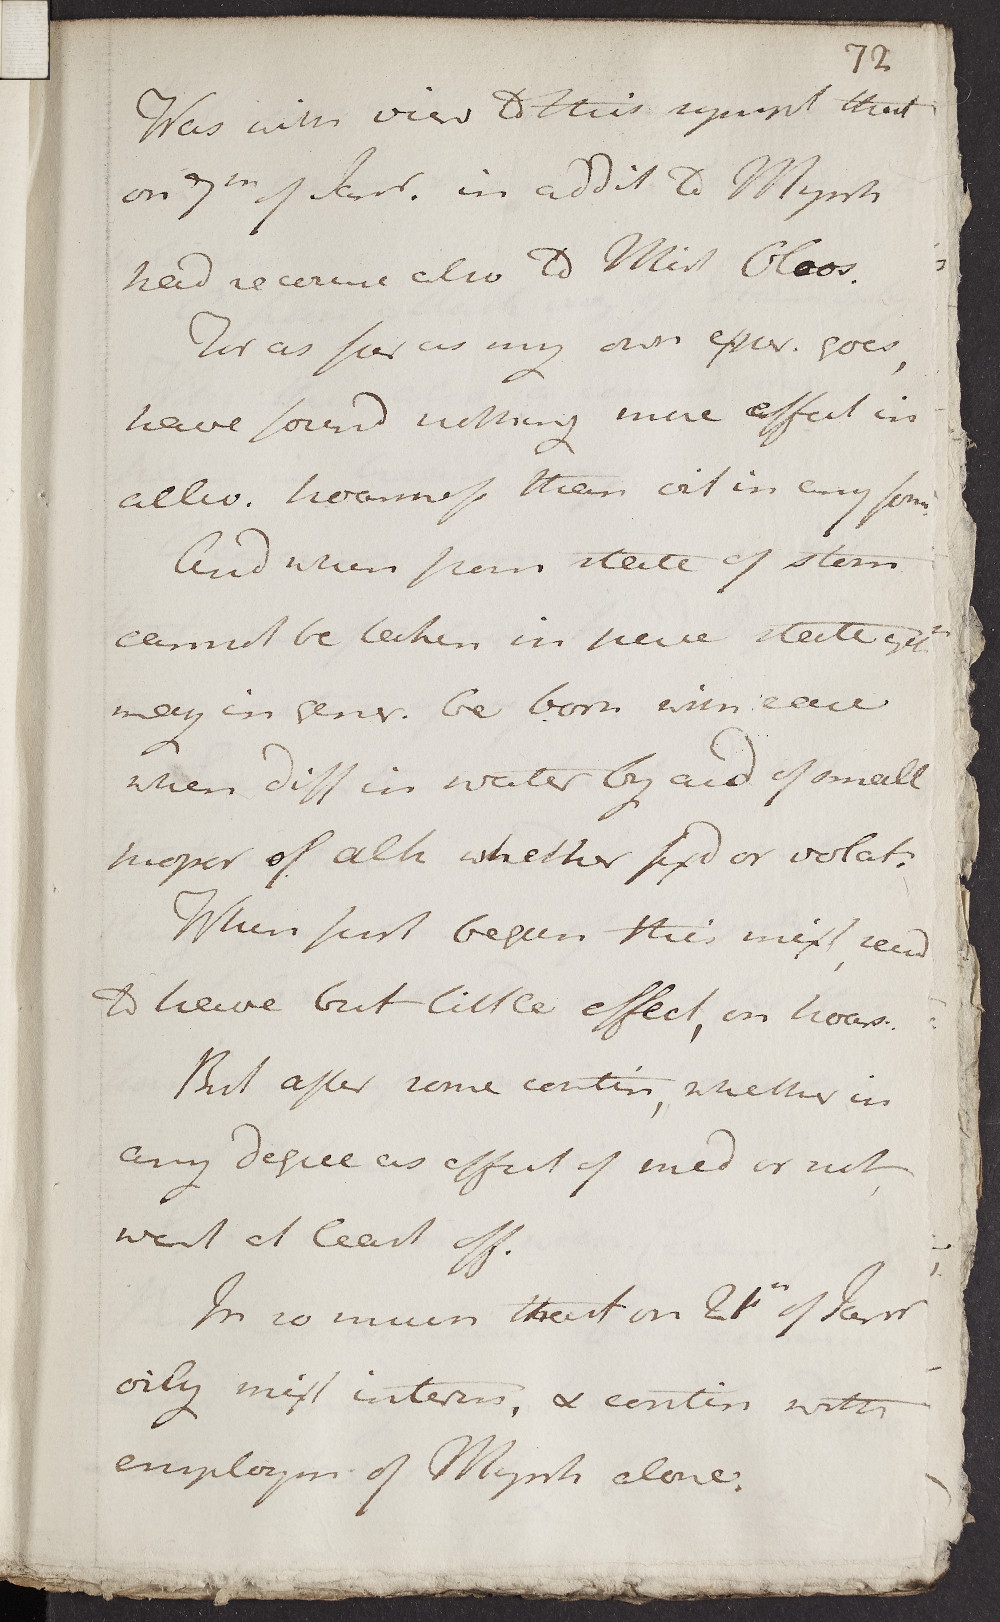 72
Was with view to this sympt that
on 7th of Janr. in addit to Myrrh
had recourse also to Mist Oleos.
For as far as my own exper. goes,
have found nothing more effect in
allev. hoarsness than oil in any form
And when from state of stom
cannot be taken in pure state yet
may in gener. be born with ease
when diff in water by aid of small
propor of alk whether fixd or volat.
When first began this mixt, seemd
to have but little effect, on hoars.
But after some contin, whether in
any degree as effect of med or not,
went at least off.
In so much that on 21st of Janr
oily mixt interm, & contin with
employm of Myrrh alone.